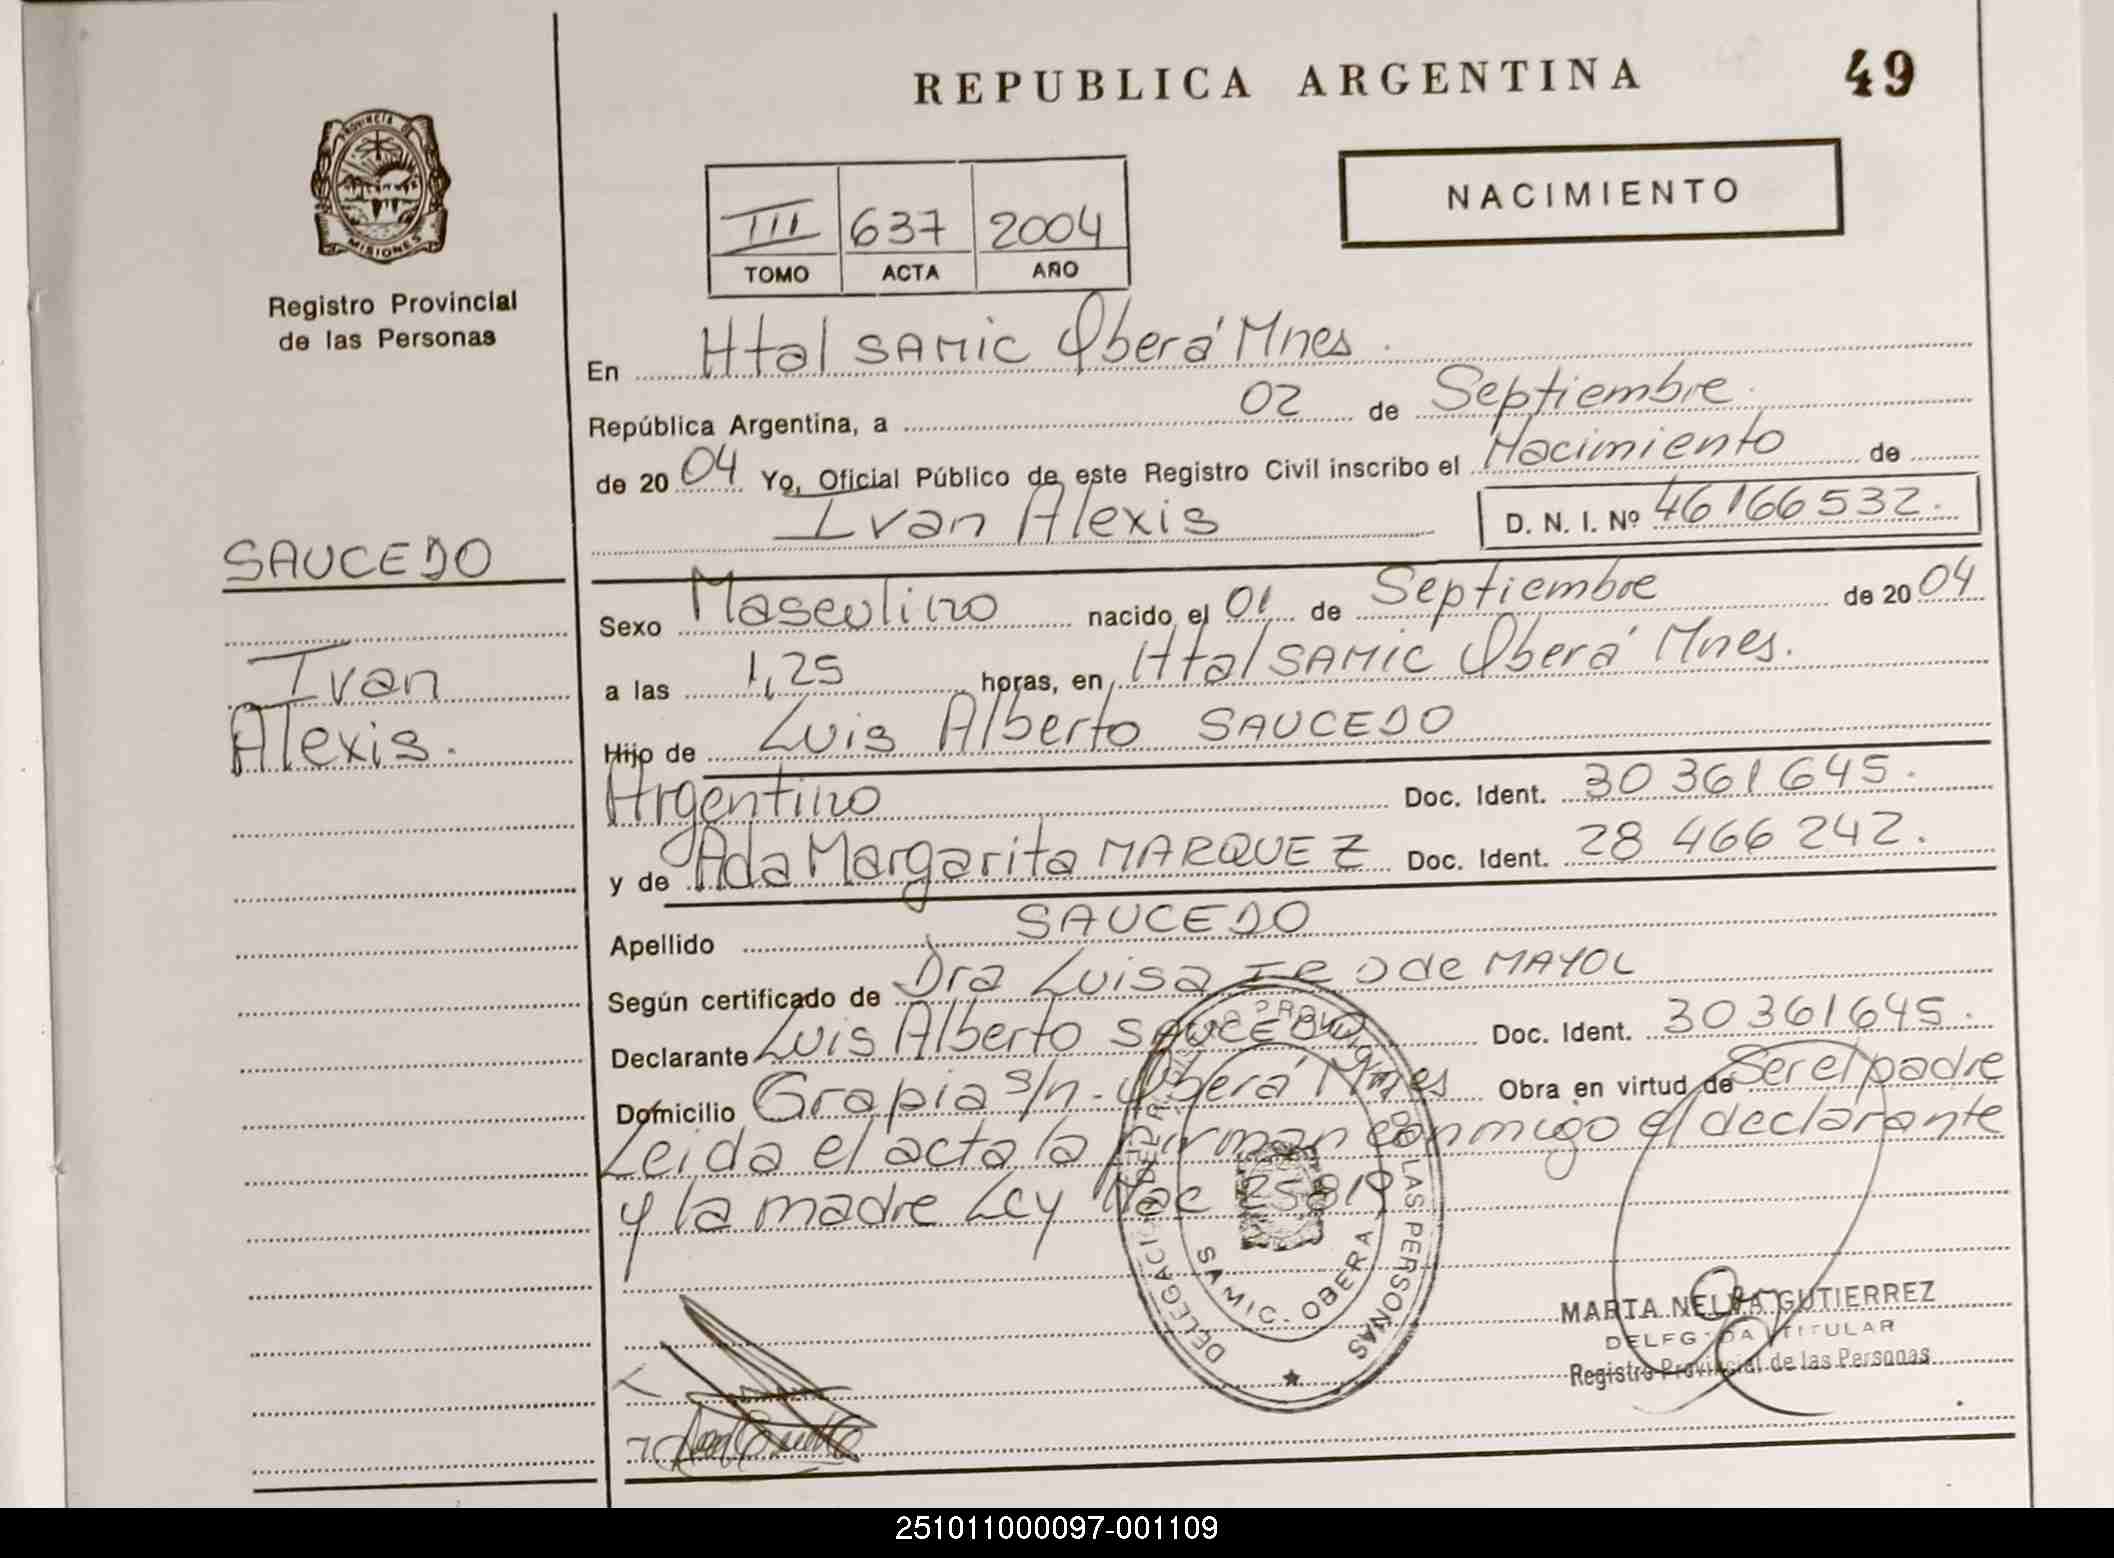 REPUBLICA ARGENTINA
49
PROVINCIA DE
MISIONES
Registro Provincial
de las Personas
III 637 2004
TOMO ACTA AÑO
NACIMIENTO
En Htal SAMIC Oberá Mnes.
República Argentina, a 02 de Septiembre
de 2004 Yo, Oficial Público de este Registro Civil inscribo el Nacimiento de
Ivan Alexis D. N. I. Nº 46166532.
SAUCEDO
Ivan
Alexis.
Sexo Masculino nacido el 01 de Septiembre de 2004
a las 1,25 horas, en Htal SAMIC Oberá Mnes.
Hijo de Luis Alberto SAUCEDO
Argentino Doc. Ident. 30 361 645.
y de Ada Margarita MARQUEZ Doc. Ident. 28 466 242.
Apellido SAUCEDO
Según certificado de Dra Luisa de MAYOL
Declarante Luis Alberto SAUCEDO Doc. Ident. 30361645.
Domicilio Grapia s/n. Oberá Mnes Obra en virtud de Ser el padre
Leida el acta la firman conmigo el declarante
y la madre Ley Nac 25819
DELEGACION DE LAS PERSONAS
SAMIC. OBERA
MARTA NELVA GUTIERREZ
DELEGADA TITULAR
Registro Provincial de las Personas
251011000097-001109